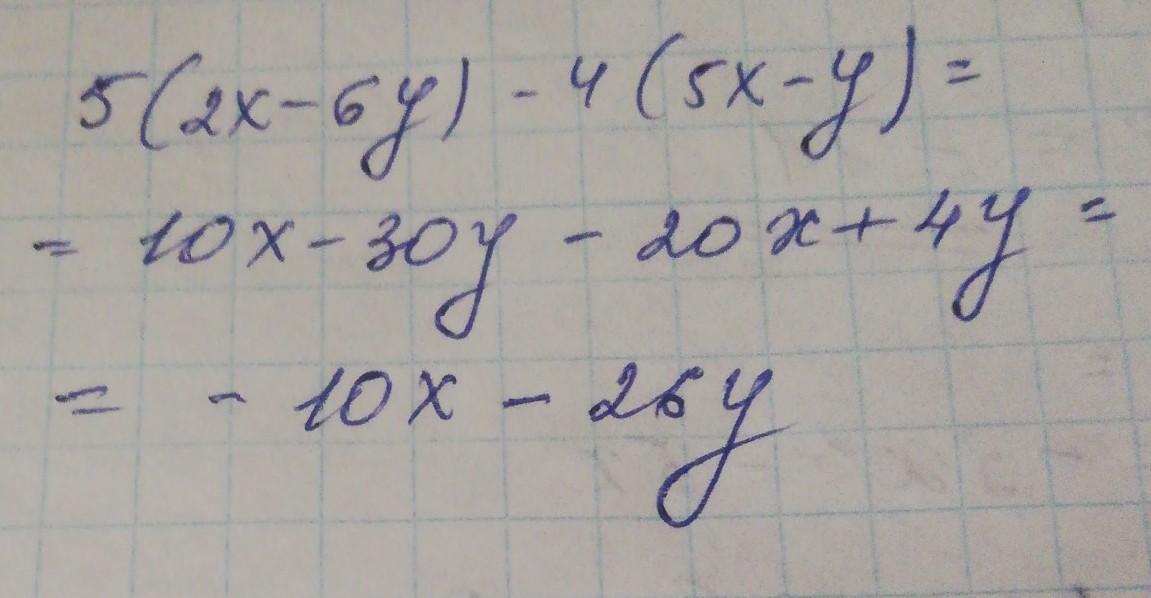 5(2x-6y)-4(5x-y)=
= 10x-30y-20x+4y=
= -10x-26y